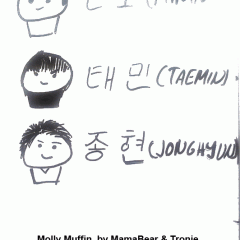 태민 (TAEMIN)
종현 (JONGHYUN)
Molly Muffin by MamaBear & Tronie